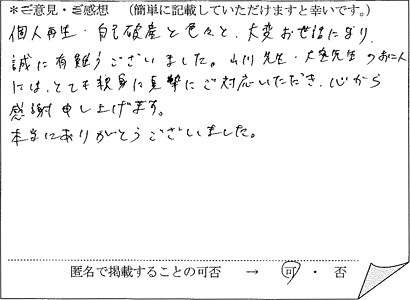 ＊ご意見・ご感想　（簡単に記載していただけますと幸いです。）
個人再生・自己破産と色々と、大変お世話になり、
誠に有難うございました。山川先生・大窪先生のお二人
には、とても親身に真摯にご対応いただき、心から
感謝申し上げます。
本当にありがとうございました。
匿名で掲載することの可否　→　可　・　否